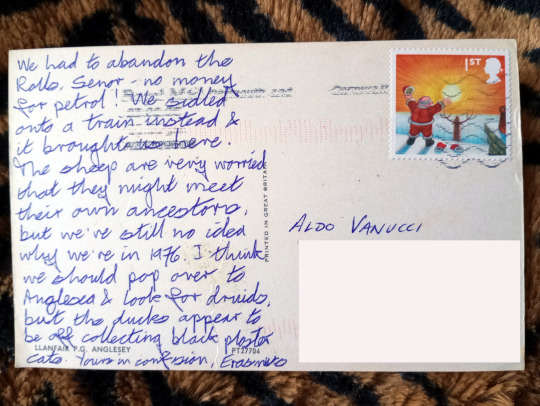 We had to abandon the
Rolls, Senor - no money
for petrol! We sidled
onto a train instead &
it brought us here.
The sheep are very worried
that they might meet
their own ancestors,
but we've still no idea
why we're in 1976. I think
we should pop over to
Anglesea & look for druids,
but the ducks appear to
be off collecting black plaster
cats. Yours in confusion, Erasmus
LLANFAIR P.G. ANGLESEY
PT27704
PRINTED IN GREAT BRITAIN
1ST
ALDO VANUCCI